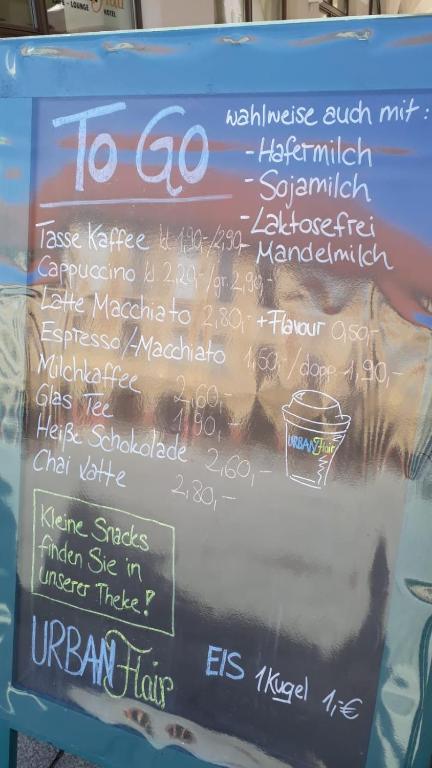 LOUNGE HOTEL
TO GO
wahlweise auch mit:
- Hafermilch
- Sojamilch
- Laktosefrei
- Mandelmilch
Tasse Kaffee kl. 1,90,-/2,90,-
Cappuccino kl. 2,20,-/gr. 2,90,-
Latte Macchiato 2,80,- + Flavour 0,50,-
Espresso/-Macchiato 1,50,-/dopp. 1,90,-
Milchkaffee 2,60,-
Glas Tee 1,90,-
Heiße Schokolade 2,60,-
Chai Latte 2,80,-
URBAN Flair
Kleine Snacks
finden Sie in
unserer Theke!
URBAN Flair
EIS 1 Kugel 1,-€